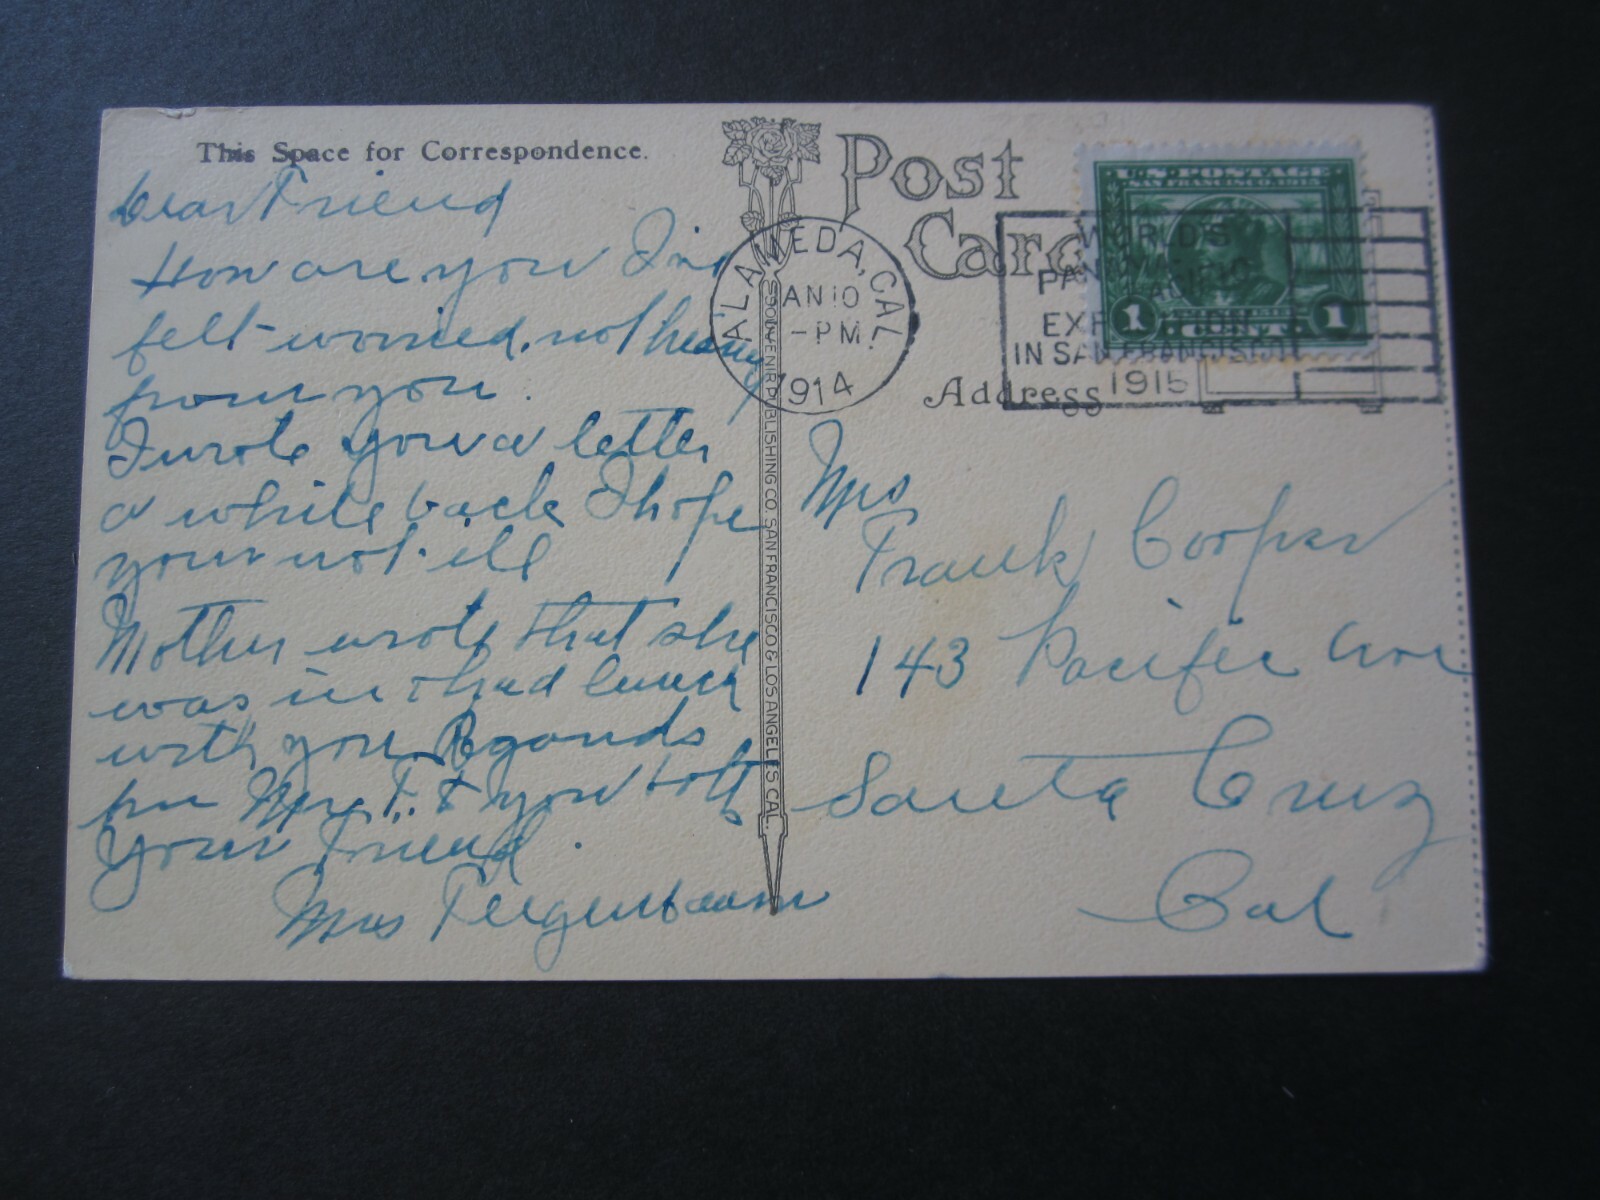 This Space for Correspondence.
Dear Friend
How are you I
felt worried, not hearing
from you.
I wrote you a letter
a while back I hope
your not ill
Mother wrote that she
was in & had lunch
with you Regards
for Mrs F. & you both
Your Friend.
Mrs
SOUVENIR PUBLISHING CO. SAN FRANCISCO & LOS ANGELES CAL.
Post
Card
ALAMEDA, CAL.
JAN 10
-PM
1914
WORLD'S
PANAMA-PACIFIC
EXPOSITION
IN SAN FRANCISCO
1915
U.S. POSTAGE
SAN FRANCISCO 1915
1 CENT 1
Address
Mrs
Frank Cooper
143 Pacific Ave
Santa Cruz
Cal